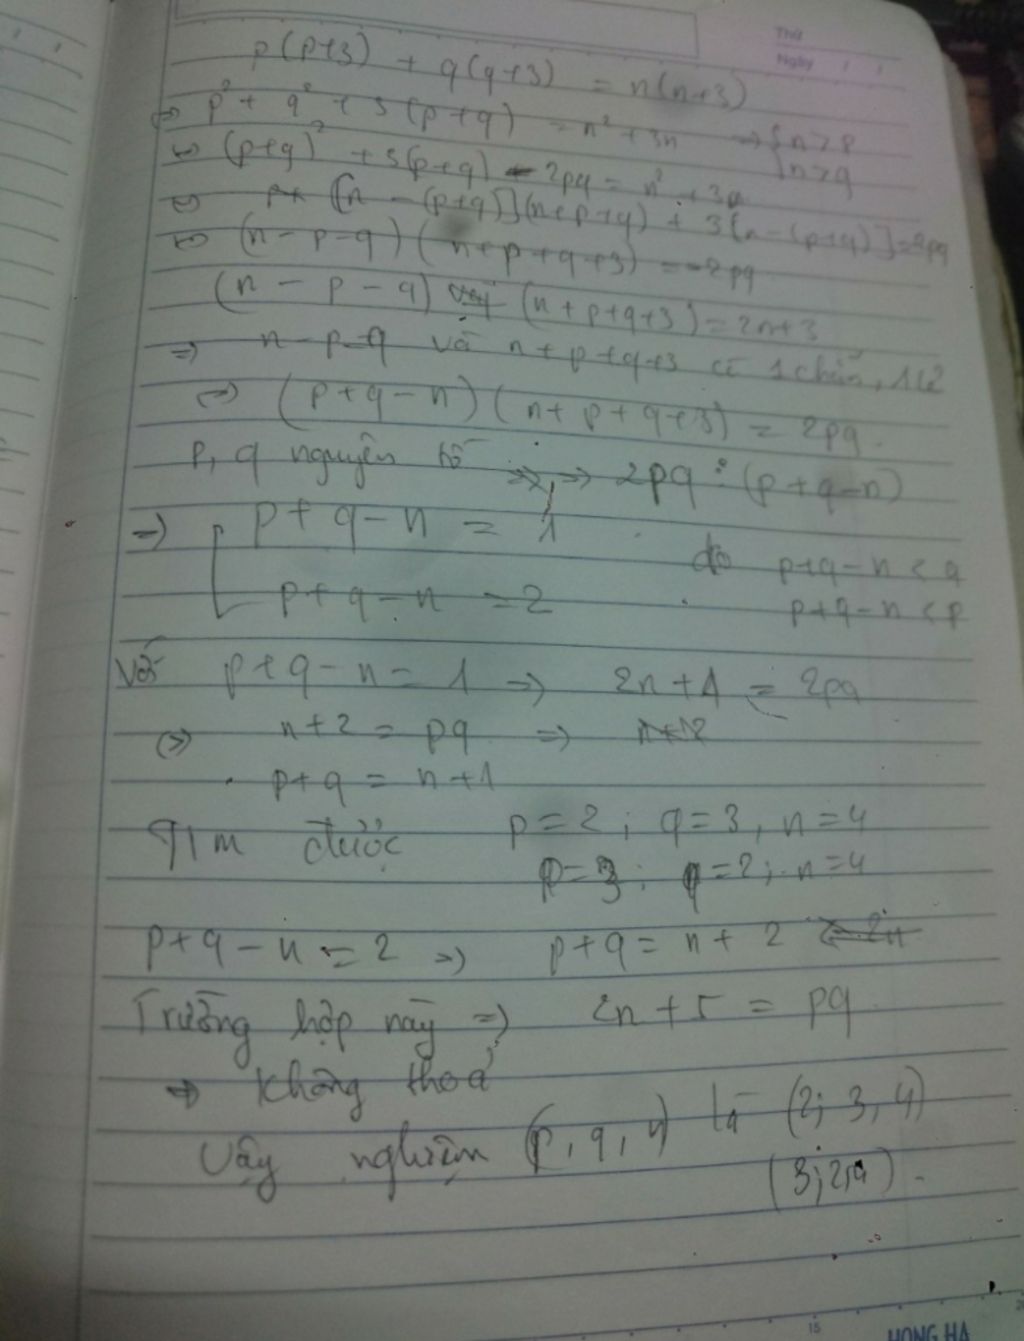 Thứ
Ngày
p(p+3) + q(q+3) = n(n+3)
⇔ p² + q² + 3(p+q) = n² + 3n → { n > p
⇔ (p+q)² + 3(p+q) - 2pq = n² + 3n { n > q
⇔ [n - (p+q)](n+p+q) + 3[n - (p+q)] = -2pq
⇔ (n - p - q)(n+p+q+3) = -2pq
(n - p - q) (n+p+q+3) = 2n+3
⇒ n - p - q và n+p+q+3 có 1 chẵn, 1 lẻ
⇔ (p+q-n)(n+p+q+3) = 2pq.
p, q nguyên tố ⇒ 2pq ⋮ (p+q-n)
⇒ [ p+q-n = 1 do p+q-n < q
[ p+q-n = 2 p+q-n < p
Với p+q-n = 1 ⇒ 2n+4 = 2pq
⇔ n+2 = pq ⇒
p+q = n+1
Tìm được p=2; q=3, n=4
p=3; q=2; n=4
p+q-n = 2 ⇒ p+q = n+2
Trường hợp này ⇒ 2n+5 = pq
⇒ Không thoả
Vậy nghiệm (p, q, n) là (2; 3, 4)
(3; 2, 4).
15
HONG HA